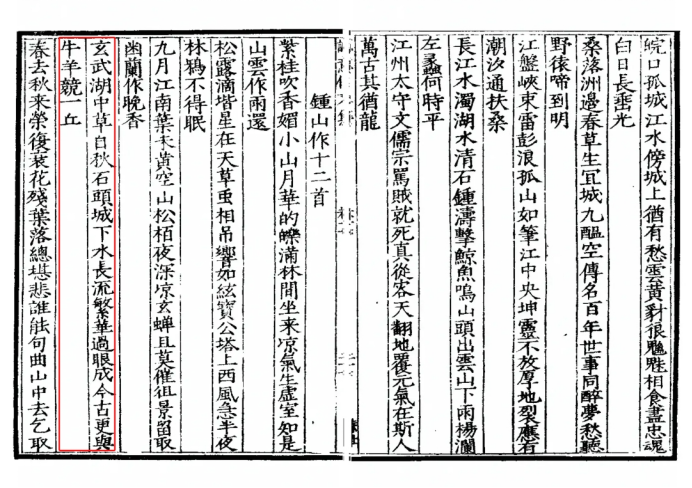 皖口孤城江水傍城上猶有愁雲黄豺狠魑魅相食盡忠魂
白日長垂光
桑落洲邊春草生宜城九醖空傳名百年世事同醉夢愁聽
野猿啼到明
江盤峽束雷彭浪孤山如筆江中央坤靈不放厚地裂應有
潮汐通扶桑
長江水濁湖水清石鍾濤擊鯨魚鳴山頭出雲山下雨楊瀾
左蠡何時平
江州太守文儒宗罵賊就死真從容天翻地覆元氣在斯人
萬古其猶龍
鍾山作十二首
紫桂吹香媚小山月華的皪滿林間坐来凉氣生虚室知是
山雲作雨還
松露滴堦星在天草虫相吊響如絃寳公塔上西風急半夜
林鴉不得眠
九月江南葉未黄空山松栢夜深凉玄蟬且莫催徂景留取
幽蘭作晚香
玄武湖中草自秋石頭城下水長流繁華過眼成今古更與
牛羊競一丘
春去秋来榮復衰花殘葉落總堪悲誰能句曲山中去乞取